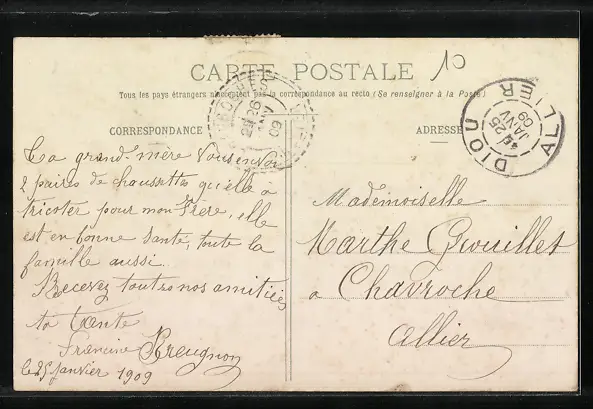 CARTE POSTALE
10
Tous les pays étrangers n'acceptent pas la correspondance au recto (Se renseigner à la Poste)
CORRESPONDANCE
ADRESSE
26
JANV
09
DIOU
25
JANV
09
ALLIER
Ta grand mère vous envoi
2 paires de chaussettes qu'elle à
tricoter pour mon Frère, elle
est en bonne santé, toute la
famille aussi.
Recevez toutes nos amitiés
ta Tante
Francine Breugnon
le 25 janvier 1909
Mademoiselle
Marthe Grouillet
a Chavroche
Allier